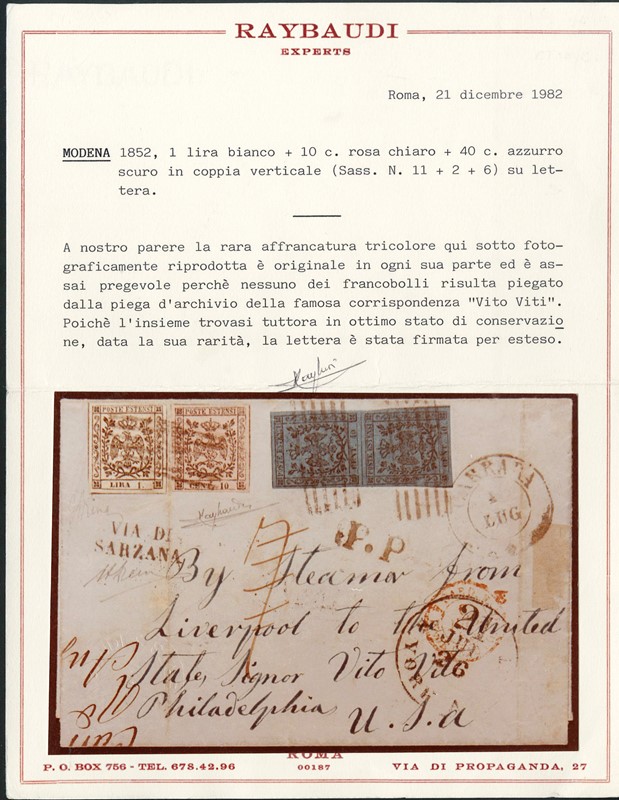 RAYBAUDI
EXPERTS
Roma, 21 dicembre 1982
MODENA 1852, 1 lira bianco + 10 c. rosa chiaro + 40 c. azzurro
scuro in coppia verticale (Sass. N. 11 + 2 + 6) su let-
tera.
A nostro parere la rara affrancatura tricolore qui sotto foto-
graficamente riprodotta è originale in ogni sua parte ed è as-
sai pregevole perchè nessuno dei francobolli risulta piegato
dalla piega d'archivio della famosa corrispondenza "Vito Viti".
Poichè l'insieme trovasi tuttora in ottimo stato di conservazio
ne, data la sua rarità, la lettera è stata firmata per esteso.
POSTE ESTENSI
LIRA 1.
POSTE ESTENSI
CENT. 10.
POSTE ESTENSI
POSTE ESTENSI
CARRARA
LUG
VIA DI
SARZANA
P.P
By Steamer from
Liverpool to the United
State, Signor Vito Viti
Philadelphia
U.S.a
ROMA
P. O. BOX 756 - TEL. 678.42.96
00187
VIA DI PROPAGANDA, 27